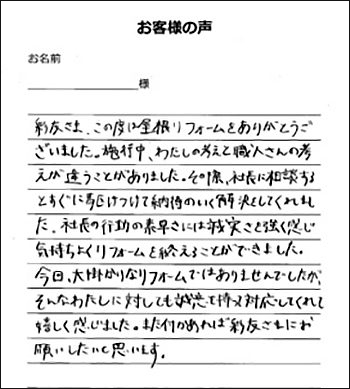 お客様の声
お名前
様
彩友さま、この度は屋根リフォームをありがとうご
ざいました。施行中、わたしの考えと職人さんの考
えが違うことがありました。その際、社長に相談する
とすぐに駆けつけて納得のいく解決をしてくれまし
た。社長の行動の素早さには誠実さを強く感じ
気持ちよくリフォームを終えることができました。
今回、大掛かりなリフォームではありませんでしたが、
そんなわたしに対しても誠意を持って対応してくれて
嬉しく感じました。また何かあれば彩友さまにお
願いしたいと思います。